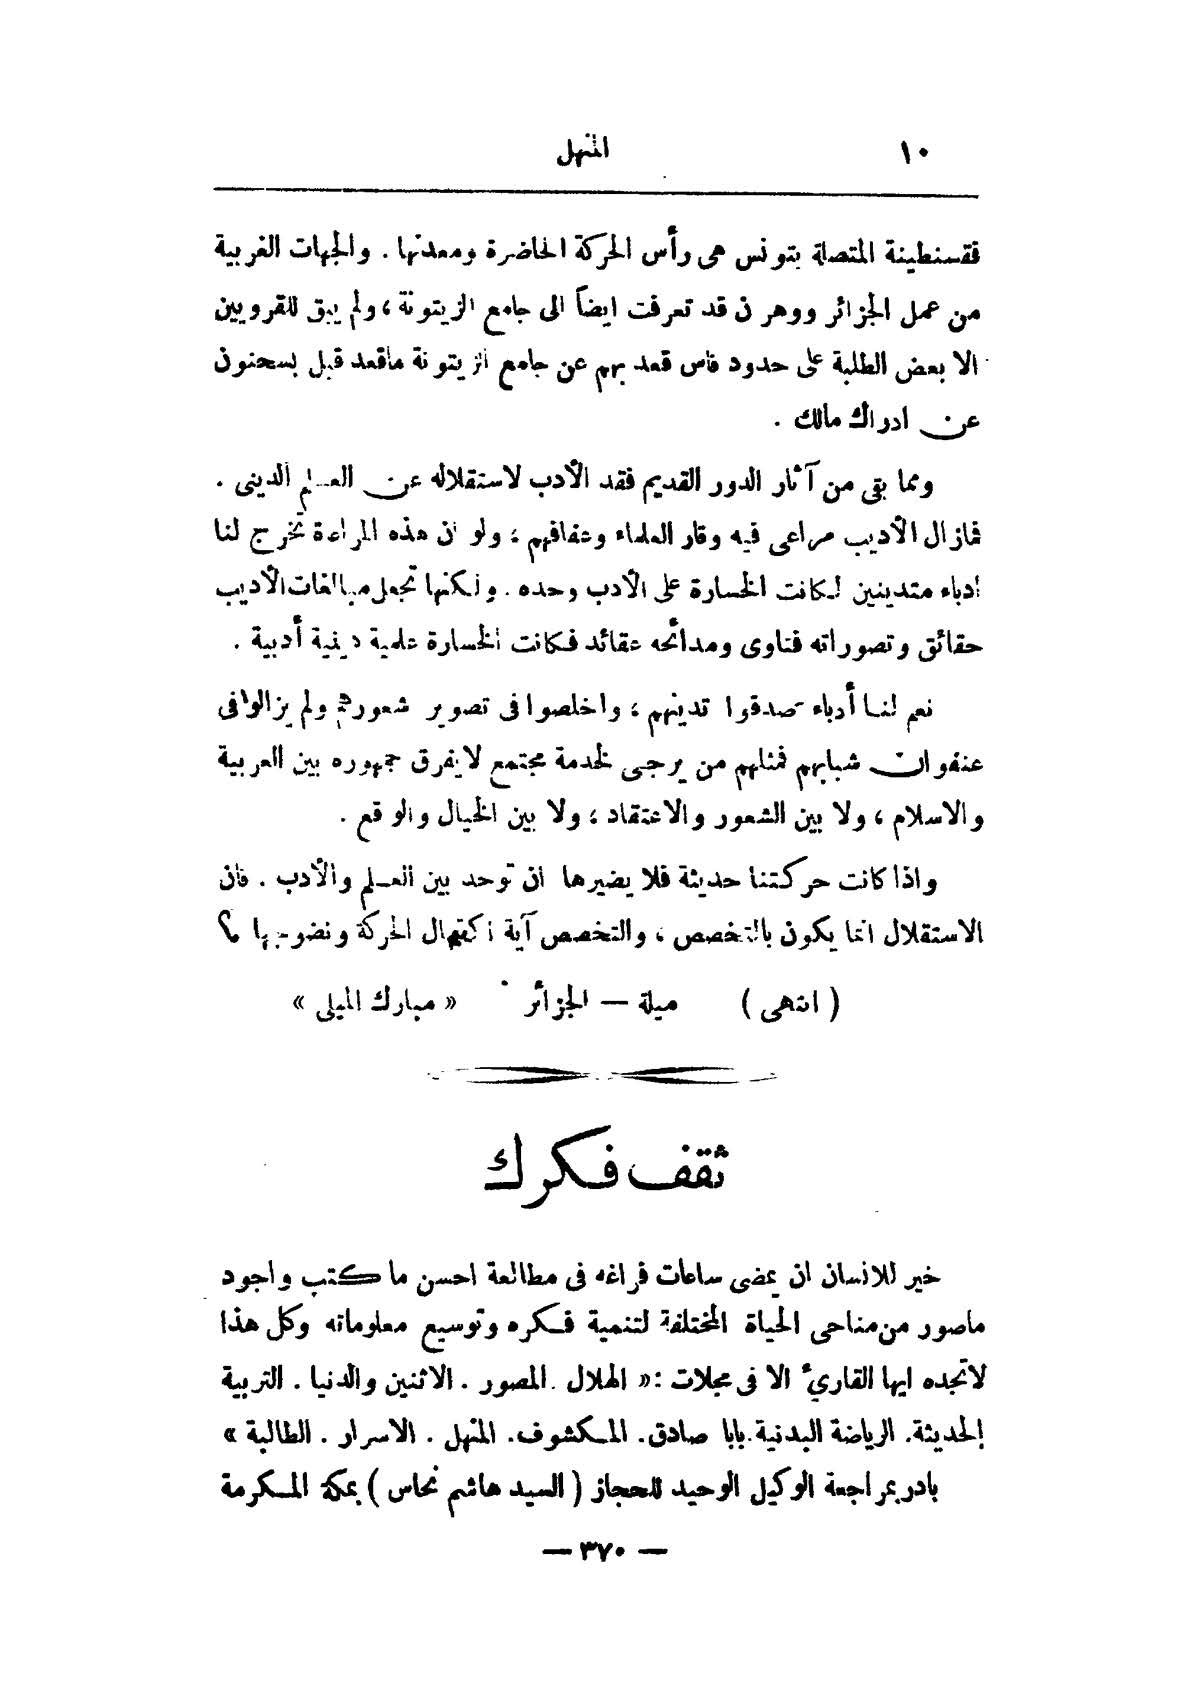 ١٠ المنهل
فقسنطينة المتصلة بتونس هى رأس الحركة الحاضرة ومعدنها . والجهات الغربية
من عمل الجزائر ووهران قد تعرفت ايضاً الى جامع الزيتونة ، ولم يبق للقرويين
الا بعض الطلبة على حدود فاس قعد بهم عن جامع الزيتونة ماقعد قبل بسحنون
عن ادراك مالك .
ومما بقى من آثار الدور القديم فقد الأدب لاستقلاله عن العلم الدينى .
فمازال الأديب مراعى فيه وقار العلماء وعفافهم ، ولو ان هذه المراعاة تخرج لنا
ادباء متدينين لكانت الخسارة على الأدب وحده . ولكنها تجعل مبالغات الأديب
حقائق وتصوراته فتاوى ومدائحه عقائد فكانت الخسارة علمية دينية أدبية .
نعم لنا أدباء صدقوا تدينهم ، واخلصوا فى تصوير شعورهم ولم يزالوا فى
عنفوان شبابهم فمثلهم من يرجى لخدمة مجتمع لا يفرق جمهوره بين العربية
والاسلام ، ولا بين الشعور والاعتقاد ، ولا بين الخيال والواقع .
واذا كانت حركتنا حديثة فلا يضيرها ان توحد بين العلم والأدب . فان
الاستقلال انما يكون بالتخصص ، والتخصص آية اكتهال الحركة ونضوجها ؟
( انتهى ) ميلة — الجزائر « مبارك الميلى »
ثقف فكرك
خير للانسان ان يمضى ساعات فراغه فى مطالعة احسن ما كتب واجود
ماصور من مناحى الحياة المختلفة لتنمية فكره وتوسيع معلوماته وكل هذا
لاتجده ايها القارىء الا فى مجلات : « الهلال . المصور . الاثنين والدنيا . التربية
الحديثة . الرياضة البدنية . بابا صادق . المكشوف . المنهل . الاسرار . الطالبة »
بادر بمراجعة الوكيل الوحيد للحجاز ( السيد هاشم نحاس ) بمكة المكرمة
— ٣٧٠ —